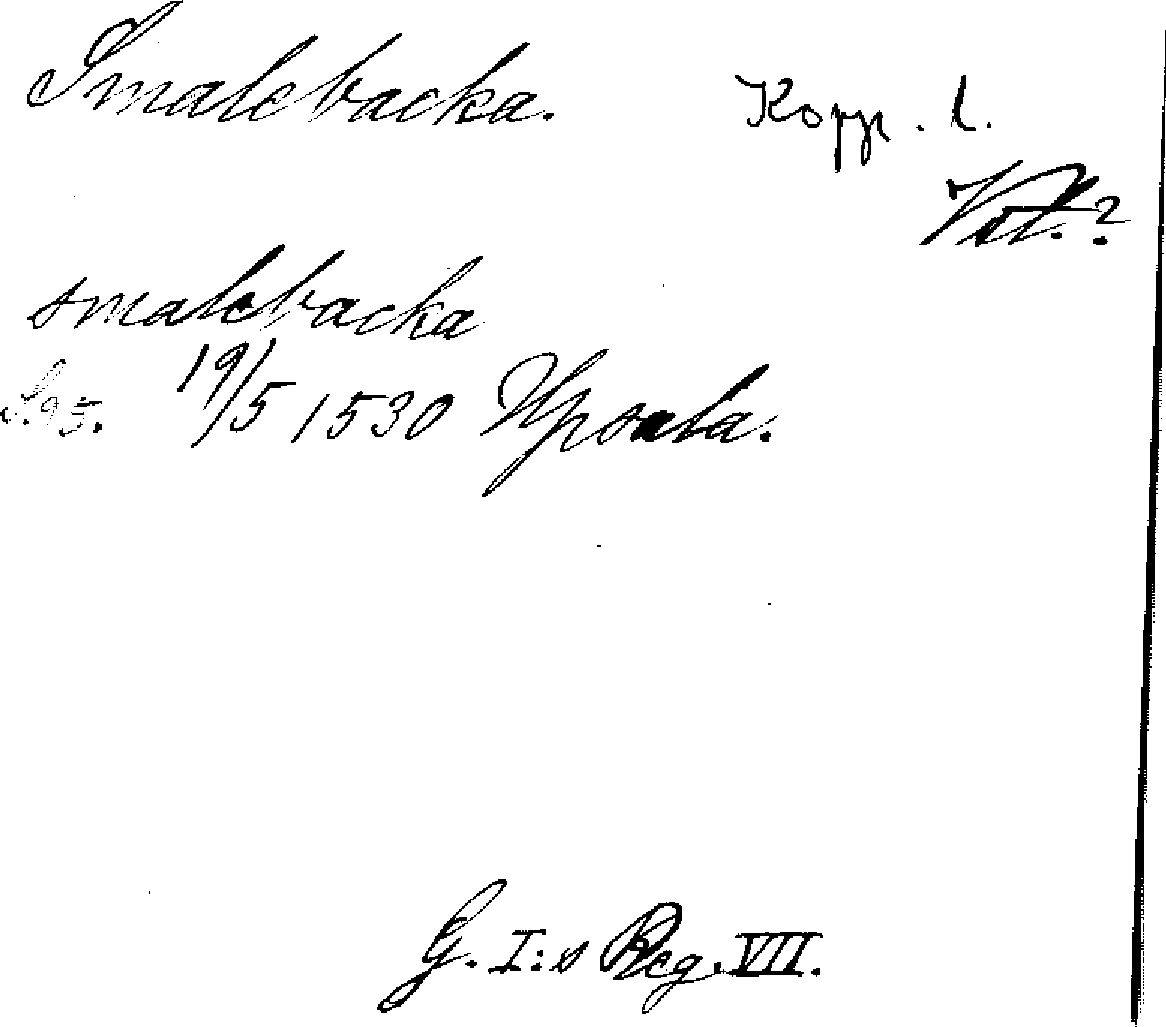 Smalebacka.
Kopp. l.
smalebacka
S. 95. 19/5 1530 Upsala.
G. I:s Reg. VII.